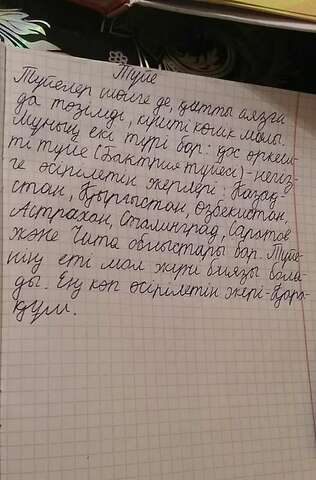 Түйе
Түйелер шөлге де, қатты аязға
да төзімді, күшті көлік малы.
Мұның екі түрі бар: қос өркеш-
ті түйе (Бактрия түйесі) - негіз-
ге өсірілетін жерлері: Қазақ-
стан, Қырғызстан, Өзбекистан,
Астрахан, Сталинград, Саратов
және Чита облыстары бар. Түйе-
нің еті мол жүні биязы бола-
ды. Ең көп өсірілетін жері - Қара-
құм.